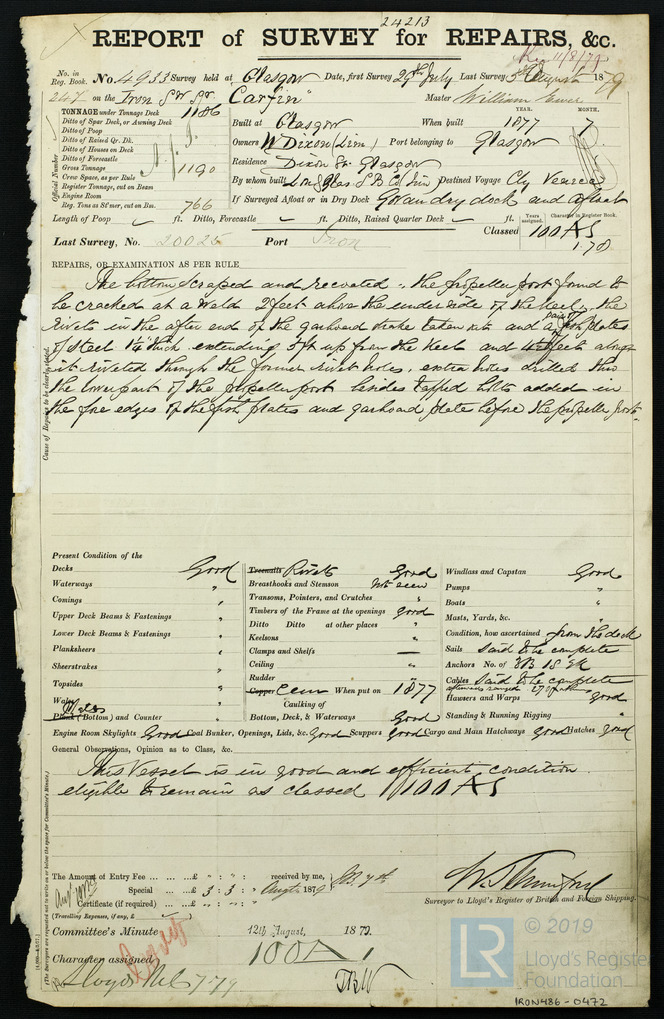 24213
REPORT of SURVEY for REPAIRS, &c.
No. in Reg. Book. No. 4933 Survey held at Glasgow Date, first Survey 29th July Last Survey 5th August 1879
247 on the Iron S W Sr "Carfin" Master William
TONNAGE under Tonnage Deck 1186
Ditto of Spar Deck, or Awning Deck
Ditto of Poop
Ditto of Raised Qr. Dk.
Ditto of Houses on Deck
Ditto of Forecastle
Gross Tonnage 1190
Crew Space, as per Rule
Register Tonnage, cut on Beam
Engine Room
Reg. Tons as St'mer, cut on Bea. 766
Official Number
YEAR. MONTH.
Built at Glasgow When built 1877 7
Owners W Dixon (Lim) Port belonging to Glasgow
Residence Dixon St. Glasgow
By whom built Lon & Glas S B Co Lim Destined Voyage
If Surveyed Afloat or in Dry Dock Govan dry dock and afloat
Length of Poop ft. Ditto, Forecastle ft. Ditto, Raised Quarter Deck ft.
Years assigned. Character in Register Book.
Classed 100 A 1
1.78
Last Survey, No. 20025 Port Iron
REPAIRS, OR EXAMINATION AS PER RULE
Cause of Repairs to be clearly stated.
The bottom scraped and recoated. the propeller post found to
be cracked at a weld 2 feet above the underside of the keel, the
rivets in the after end of the garboard strake taken out and a pair of fish plates
of steel 1¼" thick extending 3 ft up from the keel and 4 feet along
it riveted through the former rivet holes, extra holes drilled thro
the lower part of the propeller post besides tapped bolts added in
the fore edges of the fish plates and garboard plate before the propeller post.
Present Condition of the
Decks Good
Waterways "
Comings "
Upper Deck Beams & Fastenings "
Lower Deck Beams & Fastenings "
Planksheers "
Sheerstrakes "
Topsides "
Wales "
Plank (Bottom) and Counter "
Treenails Rivets Good
Breasthooks and Stemson Not seen
Transoms, Pointers, and Crutches "
Timbers of the Frame at the openings good
Ditto Ditto at other places "
Keelsons "
Clamps and Shelfs —
Ceiling "
Rudder "
Copper Cem When put on 1877
Caulking of
Bottom, Deck, & Waterways Good
Windlass and Capstan Good
Pumps "
Boats "
Masts, Yards, &c. "
Condition, how ascertained from the deck
Sails Said to be complete
Anchors No. of 3B 1S 2K
Cables Said to be complete
Hawsers and Warps good
Standing & Running Rigging "
Engine Room Skylights Good Coal Bunker, Openings, Lids, &c. Good Scuppers Good Cargo and Main Hatchways good Hatches good
General Observations, Opinion as to Class, &c.
This Vessel is in good and efficient condition
eligible to remain as classed 100 A 1
(The Surveyors are requested not to write on or below the space for Committee's Minute.)
The Amount of Entry Fee ... ... ... £ " : " : received by me,
Special ... ... £ 3 : 3 : Augt 1879
Certificate (if required) ... £ " : " :
(Travelling Expenses, if any, £ )
Surveyor to Lloyd's Register of British and Foreign Shipping.
Committee's Minute 12th August, 1879.
Character assigned 100 A 1
Lloyds M C 7.79
© 2019
LR
Lloyd's Register
Foundation
IRON486-0472